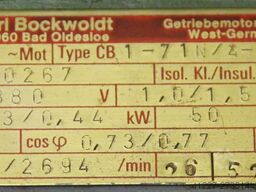 rl Bockwoldt Getriebemotor
060 Bad Oldesloe West-Germ
~Mot Type CB 1-71N/4-
0267 Isol. Kl./Insul.
380 V 1,0/1,5
3/0,44 kW 50
cosφ 0,73/0,77
/2694 /min 26 52